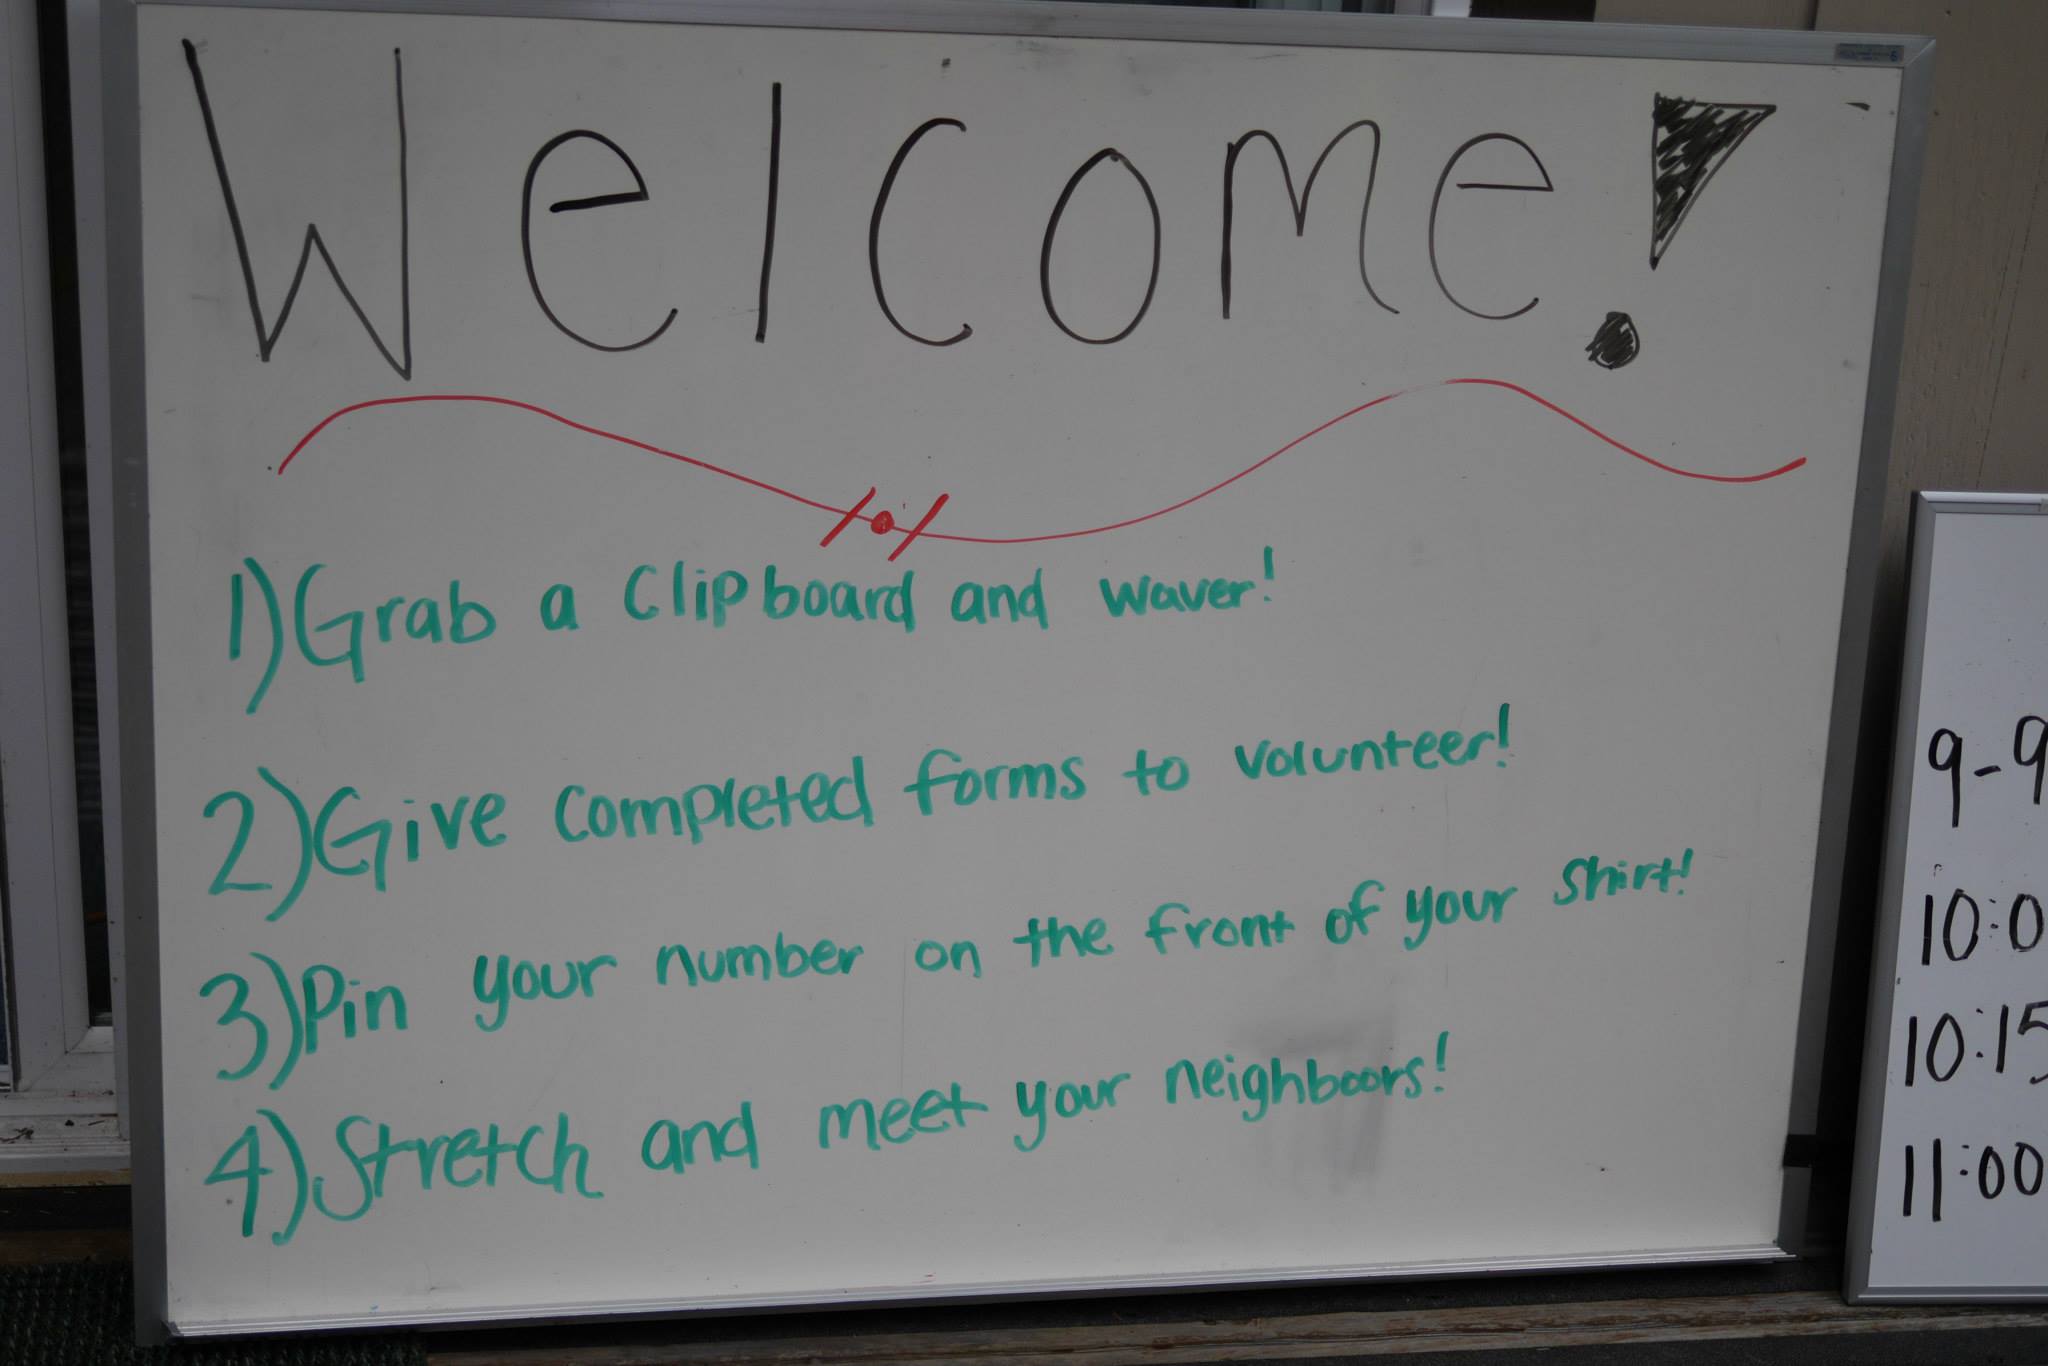 Welcome!
1) Grab a Clipboard and waver!
2) Give completed forms to volunteer!
3) Pin your number on the front of your shirt!
4) Stretch and meet your neighboors!
9-9
10:0
10:15
11:00